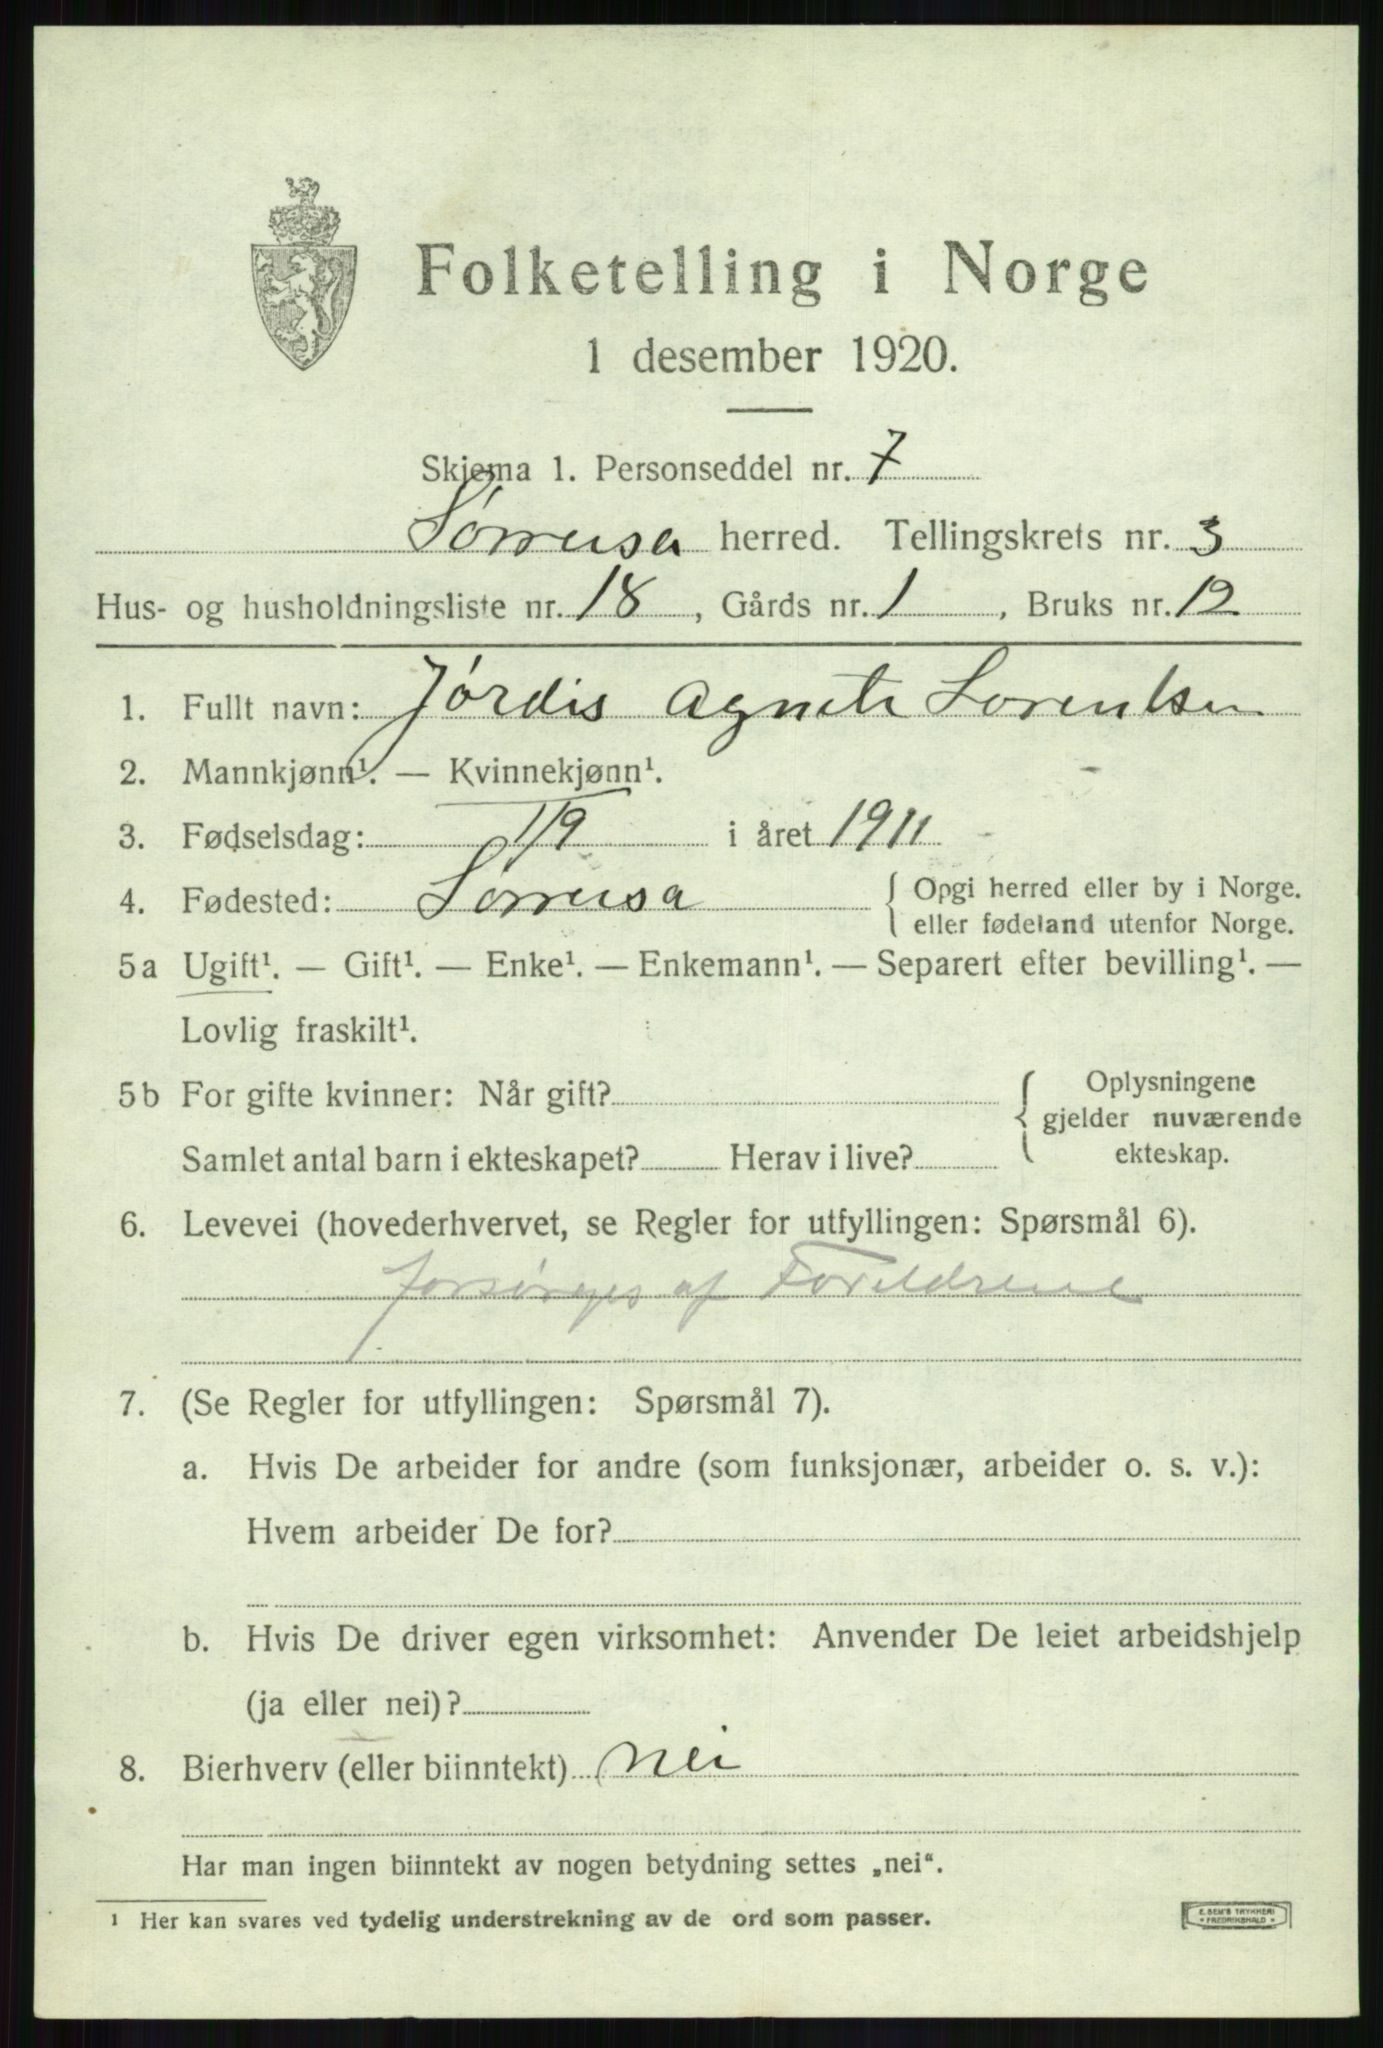 Folketelling i Norge
1 desember 1920.
Skjema 1. Personseddel nr. 7
Sørreisa herred. Tellingskrets nr. 3
Hus- og husholdningsliste nr. 18, Gårds nr. 1, Bruks nr. 12
1. Fullt navn: Jørdis Agnete Lorentsen
2. Mannkjønn¹. — Kvinnekjønn¹.
3. Fødselsdag: 1/9 i året 1911
4. Fødested: Sørreisa { Opgi herred eller by i Norge.
eller fødeland utenfor Norge.
5a Ugift¹. — Gift¹. — Enke¹. — Enkemann¹. — Separert efter bevilling¹. —
Lovlig fraskilt¹.
5b For gifte kvinner: Når gift? { Oplysningene
gjelder nuværende
Samlet antal barn i ekteskapet? Herav i live? ekteskap.
6. Levevei (hovederhvervet, se Regler for utfyllingen: Spørsmål 6).
forsørges af Foreldrene
7. (Se Regler for utfyllingen: Spørsmål 7).
a. Hvis De arbeider for andre (som funksjonær, arbeider o. s. v.):
Hvem arbeider De for?
b. Hvis De driver egen virksomhet: Anvender De leiet arbeidshjelp
(ja eller nei)?
8. Bierhverv (eller biinntekt) nei
Har man ingen biinntekt av nogen betydning settes „nei“.
¹ Her kan svares ved tydelig understrekning av de ord som passer.
E. SEM'S TRYKKERI
FREDRIKSHALD